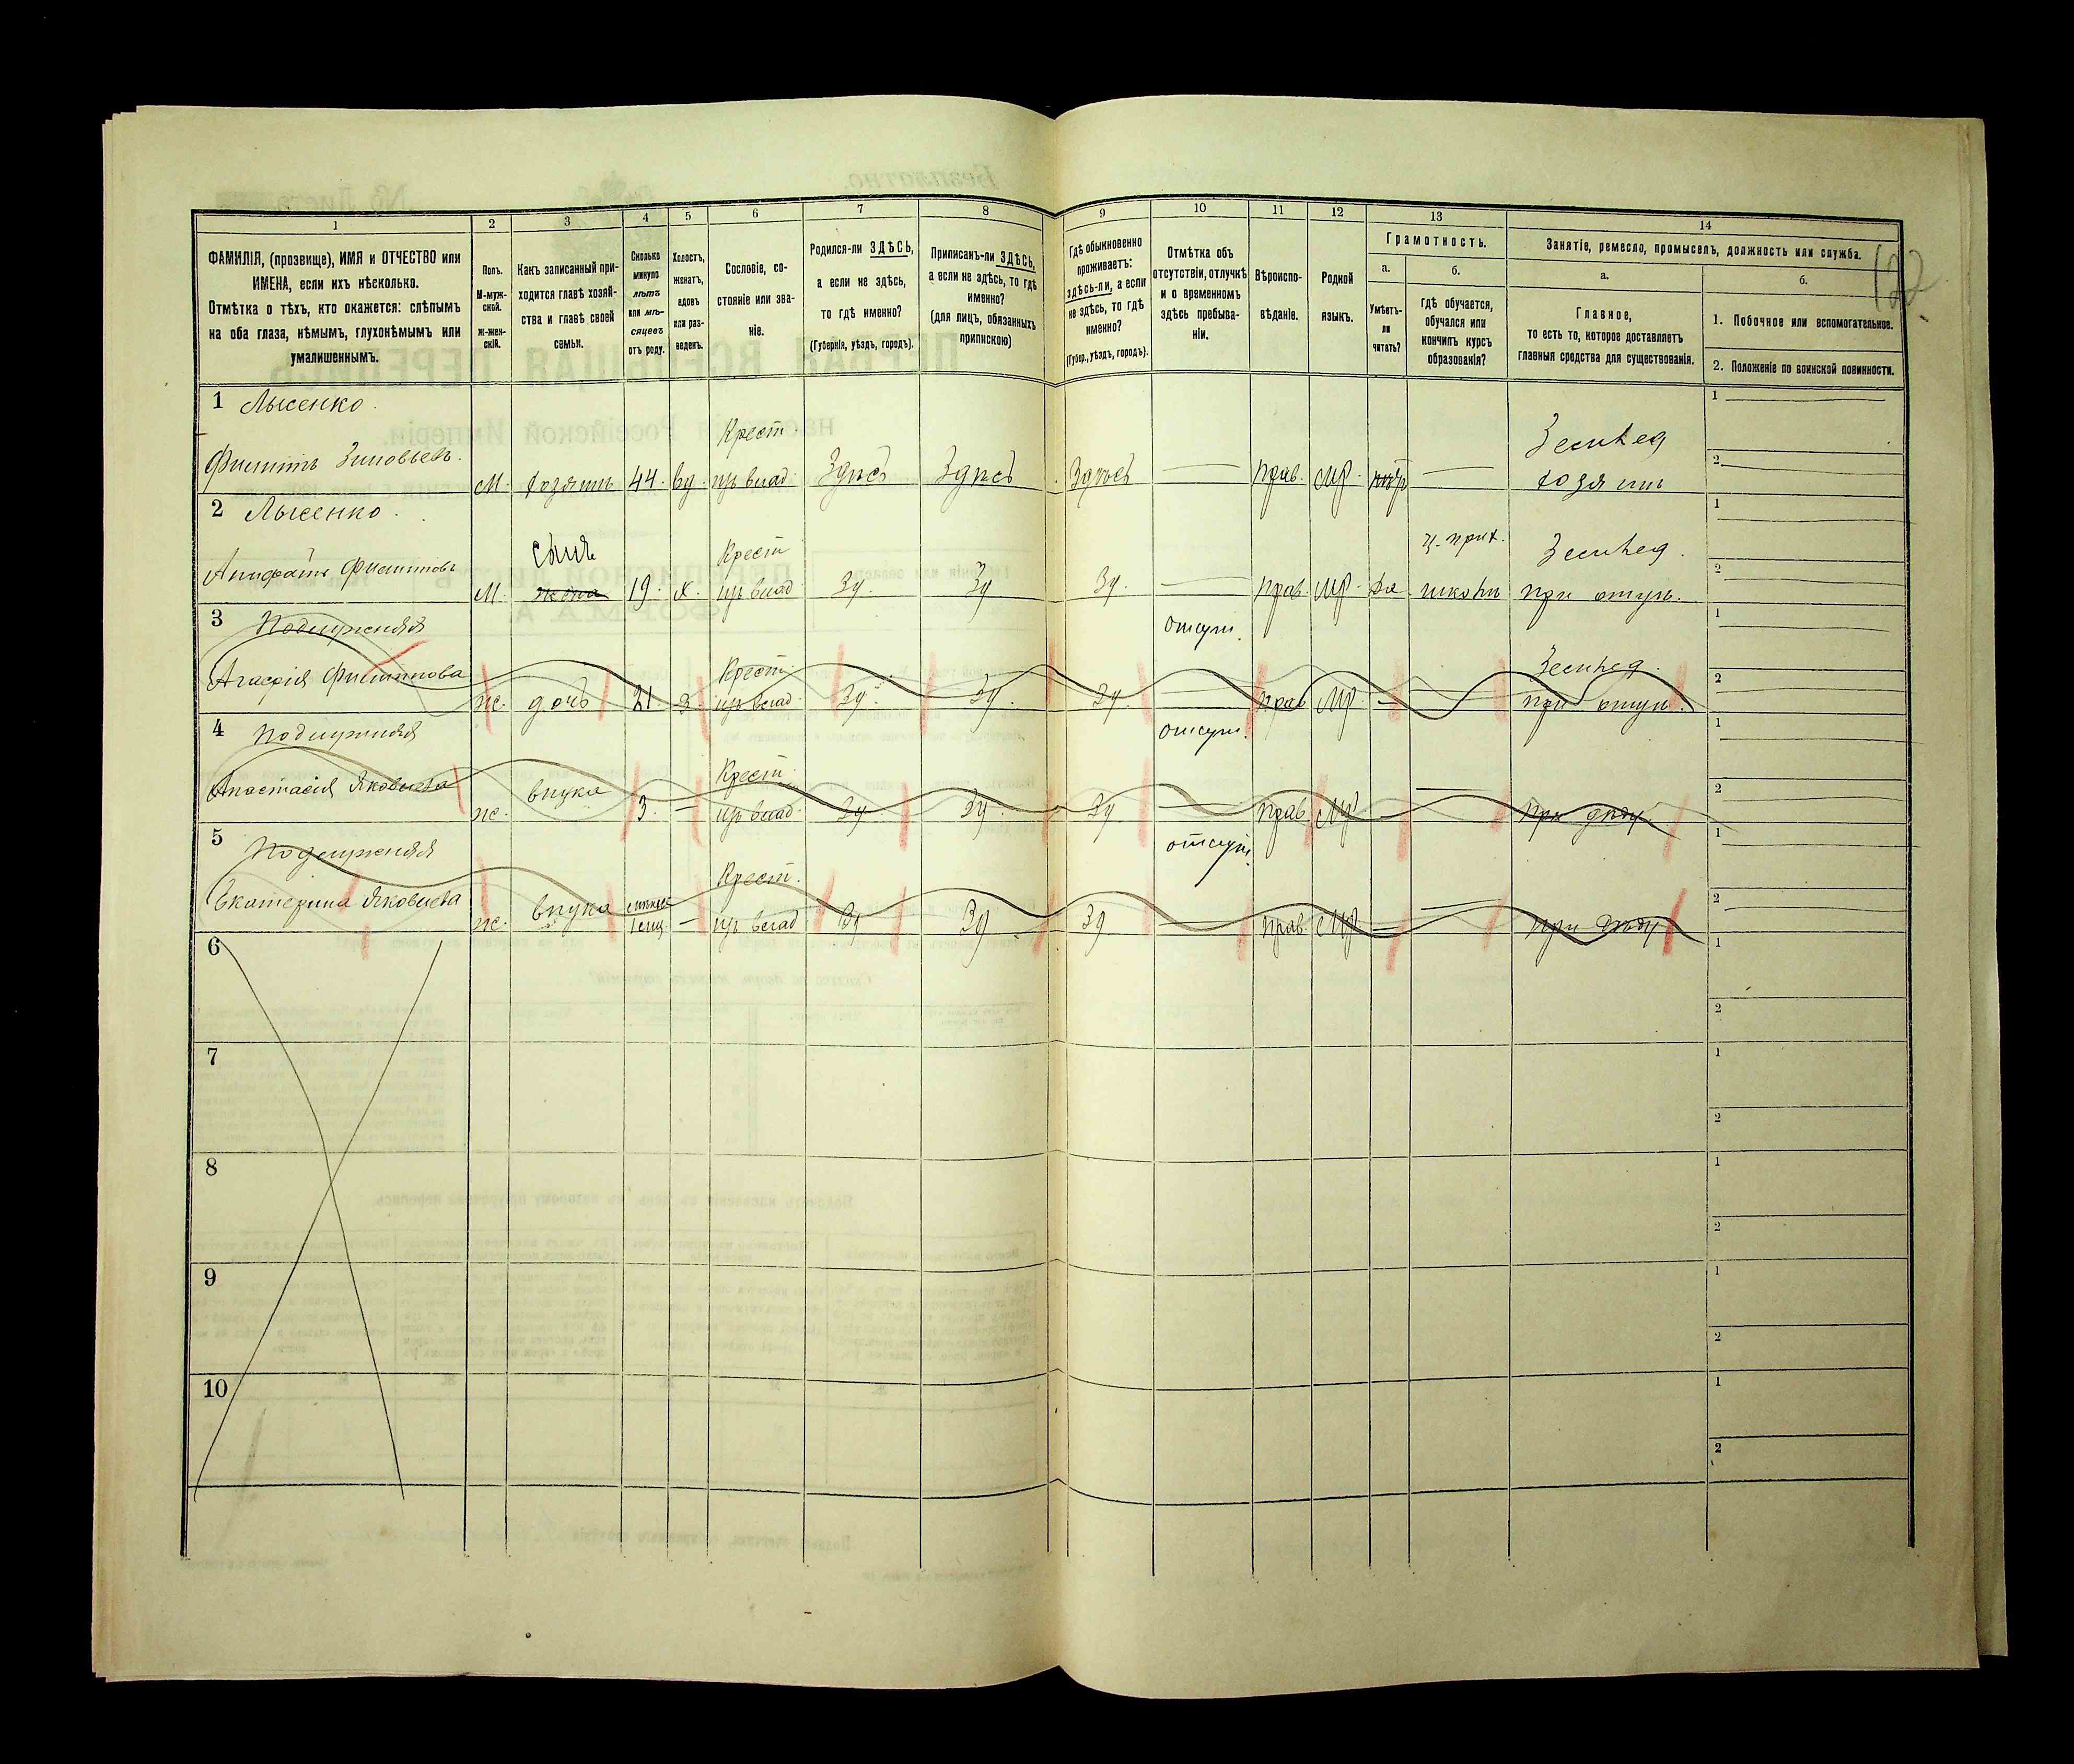 1
2
3
4
5
6
7
8
9
10
11
12
13
14
ФАМИЛІЯ, (прозвище), ИМЯ и ОТЧЕСТВО или
ИМЕНА, если ихъ нѣсколько.
Отмѣтка о тѣхъ, кто окажется: слѣпымъ
на оба глаза, нѣмымъ, глухонѣмымъ или
умалишеннымъ.
Полъ.
М-муж-
ской.
Ж-жен-
скій.
Какъ записанный при-
ходится главѣ хозяй-
ства и главѣ своей
семьи.
Сколько
минуло
лѣтъ
или мѣ-
сяцевъ
отъ роду.
Холостъ,
женатъ,
вдовъ
или раз-
веденъ.
Сословіе, со-
стояніе или зва-
ніе.
Родился-ли ЗДѢСЬ,
а если не здѣсь,
то гдѣ именно?
(Губернія, уѣздъ, городъ).
Приписанъ-ли ЗДѢСЬ,
а если не здѣсь, то гдѣ
именно?
(для лицъ, обязанныхъ
припискою)
Гдѣ обыкновенно
проживаетъ:
здѣсь-ли, а если
не здѣсь, то гдѣ
именно?
(Губер., уѣздъ, городъ).
Отмѣтка объ
отсутствіи, отлучкѣ
и о временномъ
здѣсь пребыва-
ніи.
Вѣроиспо-
вѣданіе.
Родной
языкъ.
Грамотность.
а.
Умѣетъ-
ли
читать?
б.
гдѣ обучается,
обучался или
кончилъ курсъ
образованія?
Занятіе, ремесло, промыселъ, должность или служба.
а.
Главное,
то есть то, которое доставляетъ
главныя средства для существованія.
б.
1. Побочное или вспомогательное.
2. Положеніе по воинской повинности.
122
1 Лысенко.
Филиппъ Зиновьевъ.
М. хозяинъ 44. вд. Крест. изъ влад. Здѣсь Здѣсь Здѣсь — прав. Мр. —
Землед. хозяинъ
1
2
2 Лысенко.
Филипповъ
М. жена сынъ 19. х. Крест. изъ влад. Зд. Зд Зд. — прав. Мр. да ц.-прих. школѣ
Землед. при отцѣ.
1
2
3
Филиппова
ж. дочь 21 з. Крест. изъ влад. Зд. Зд. Зд. отсут. — прав. Мр. — —
Землед. при отцѣ.
1
2
4
Анастасія Яковлева
ж. внука 3. — Крест. изъ влад. Зд. Зд. Зд. отсут. — прав. Мр. — —
при дѣдѣ.
1
2
5
Екатерина Яковлева
ж. внука — Крест. изъ влад. Зд Зд Зд. отсут. — прав. Мр. — —
при дѣдѣ
1
2
6
1
2
7
1
2
8
1
2
9
1
2
10
1
2